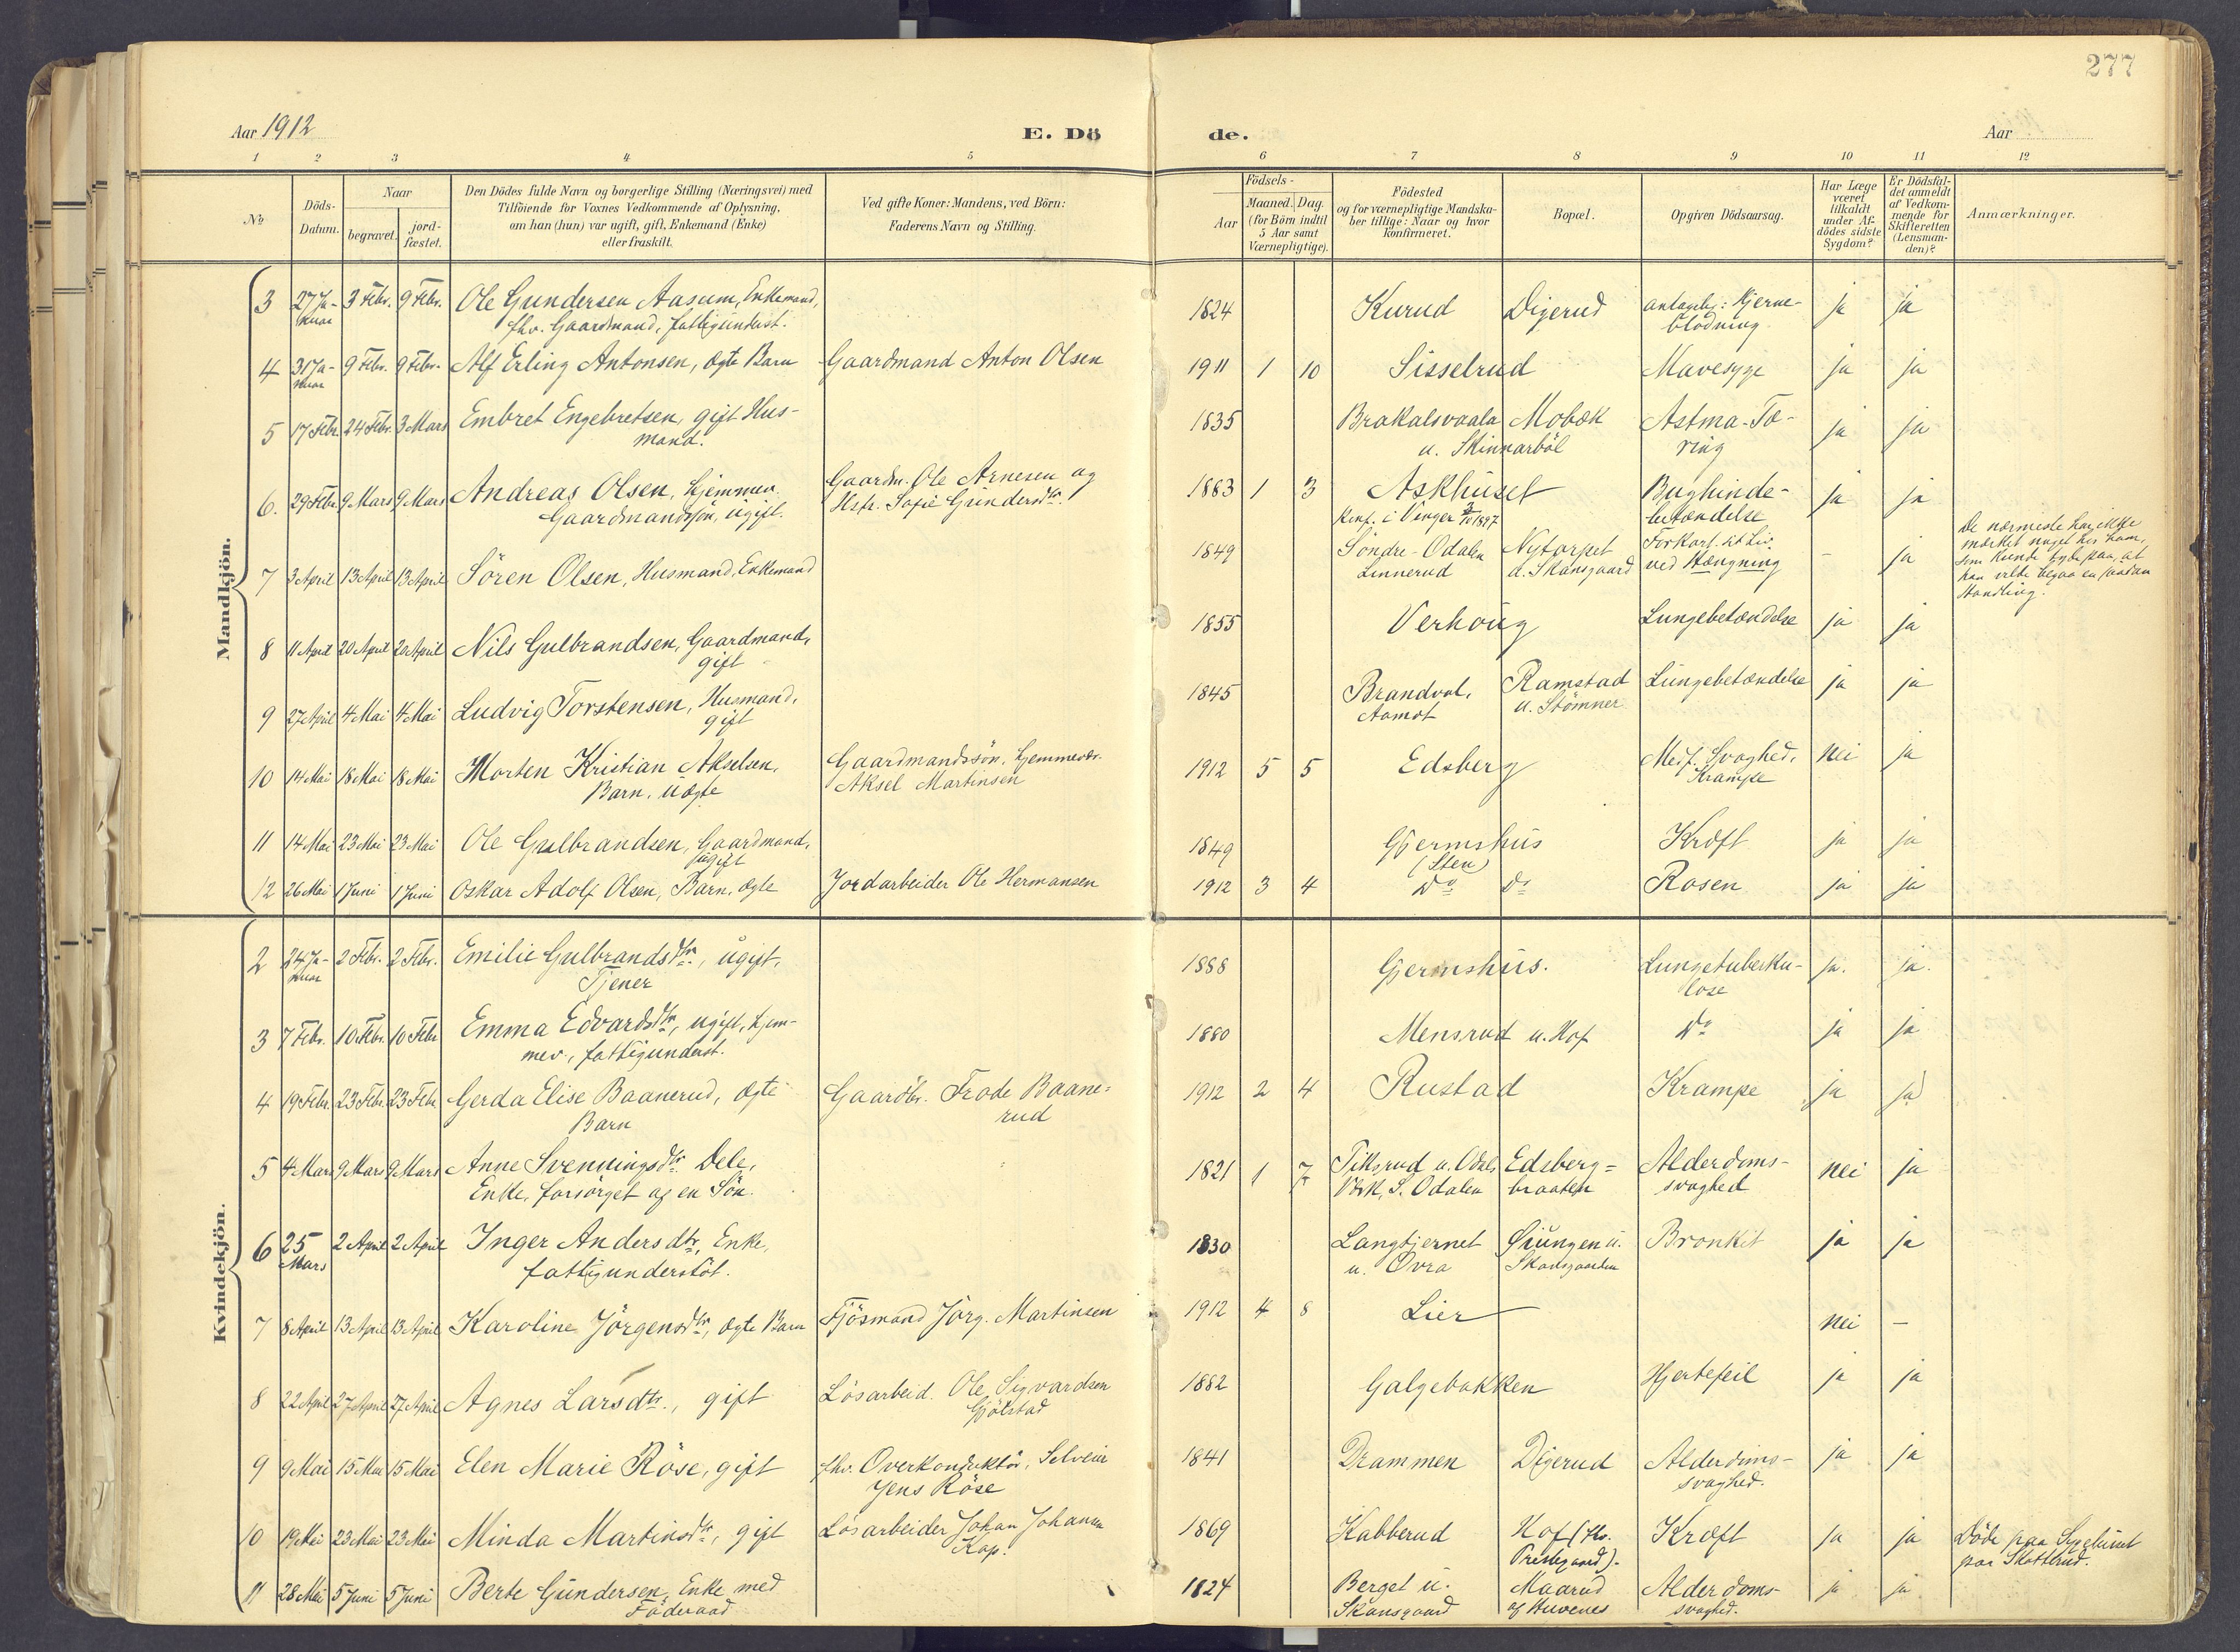 277
Aar 1912
E. Dö
de.
Aar
1 2 3 4 5 6 7 8 9 10 11 12
No
Döds-
Datum.
Naar
begravet.
jord-
fæstet.
Den Dödes fulde Navn og borgerlige Stilling (Næringsvei) med
Tilföiende for Voxnes Vedkommende af Oplysning,
om han (hun) var ugift, gift, Enkemand (Enke)
eller fraskilt.
Ved gifte Koner: Mandens, ved Börn:
Faderens Navn og Stilling.
Födsels-
Aar
Maaned. Dag.
(for Börn indtil
5 Aar samt
Værnepligtige).
Födested
og for værnepligtige Mandska-
ber tillige: Naar og hvor
konfirmeret.
Bopæl.
Opgiven Dödsaarsag.
Har Læge
været
tilkaldt
under Af-
dödes sidste
Sygdom?
Er Dödsfal-
det anmeldt
af Vedkom-
mende for
Skifteretten
(Lensman-
den)?
Anmærkninger.
Mandkjön.
3 27 Ja- 3 Febr. 9 Febr. Ole Gundersen Aasum, Enkemand, 1824 Kurud Digerud antagelig: Hjerne- ja ja
nuar fhv. Gaardmand, fattigunderst. blödning
4 31 Ja- 9 Febr. 9 Febr. Alf Erling Antonsen, ægte Barn Gaardmand Anton Olsen 1911 1 10 Sisselrud Mavesyge ja ja
nuar
5 17 Febr. 24 Febr. 3 Mars Embret Engebretsen, gift Hus- 1835 Brakalsvaala Mobæk Astma-Tæ- ja ja
mand. u. Skinnarböl ring
6. 29 Febr. 9 Mars 9 Mars Andreas Olsen, hjemmev. Gaardm. Ole Arnesen og 1883 1 3 Askhuset Bughinde- ja ja
Gaardmandssön, ugift. Hstr. Sofie Gundersdtr. Konf. i Vinger 1897 betændelse
7 3 April 13 April 13 April Sören Olsen, Husmand, Enkemand 1849 Söndre-Odalen Nytorpet Forkort. sit Liv - ja
Linnerud u. Skansgaard ved Hængning
De nærmeste har ikke
mærket noget hos ham,
som kunde tyde paa, at
han vilde begaa en saadan
Handling.
8 11 April 20 April 20 April Nils Gulbrandsen, Gaardmand, 1855 Verhoug Lungebetændelse ja ja
gift
9 27 April 4 Mai 4 Mai Ludvig Torstensen, Husmand, 1845 Brandval, Ramstad Lungebetændelse ja ja
gift Aamot u. Stömner
10 14 Mai 18 Mai 18 Mai Morten Kristian Akselsen, Gaardmandssön, hjemmevær. 1912 5 5 Edsberg Medf. Svaghed, nei ja
Barn, uægte Aksel Martinsen Krampe
11 14 Mai 23 Mai 23 Mai Ole Gulbrandsen, Gaardmand, 1849 Gjermshus Kræft ja ja
ugift (Sten)
12 26 Mai 1 Juni 1 Juni Oskar Adolf Olsen, Barn, ægte Jordarbeider Ole Hermansen 1912 3 4 Do Do Rosen ja ja
Kvindekjön.
2 24 Ja- 2 Febr. 2 Febr. Emilie Gulbrandsdtr., ugift, 1888 Gjermshus. Lungetuberku- ja. ja.
nuar Tjener lose
3 7 Febr. 10 Febr. 10 Febr Emma Edvardsdtr, ugift, hjem- 1880 Mensrud u. Hof Do ja ja
mev, fattigunderst.
4 19 Febr. 23 Febr. 23 Febr Gerda Elise Baanerud, ægte Gaardbr. Frode Baane- 1912 2 4 Rustad Krampe ja ja
Barn rud
5 4 Mars 9 Mars 9 Mars Anne Svenningsdtr Dele, 1821 1 7 Tiksrud u. Odals Edsberg- Alderdoms- nei ja
Enke, forsörget af en Sön. Værk, S. Odalen braaten svaghed
6 25 2 April 2 April Inger Andersdtr, Enke, 1830 Langtjernet Öiungen u. Bronkit ja ja
Mars fattigunderstöt. u. Ovra Skansgaarden
7 8 April 13 April 13 April Karoline Jörgensdtr, ægte Barn Fjösmand Jörg. Martinsen 1912 4 8 Lier nei -
8 22 April 27 April 27 April Agnes Larsdtr., gift Lösarbeid. Ole Sigvardsen 1882 Galgebakken Hjertefeil ja ja
Gjölstad
9 9 Mai 15 Mai 15 Mai Elen Marie Röse, gift fhv. Overkonduktör, Selveier 1841 Drammen Digerud Alderdoms- ja ja
Jens Röse svaghed.
10 19 Mai 23 Mai 23 Mai Minda Martinsdtr, gift Lösarbeider Johan Johansen 1869 Kabberud Hof Kræft ja ja Döde paa Sygehuset
Prestegaard). paa Skotterud.
11 28 Mai 5 Juni 5 Juni Berte Gundersen, Enke med 1824 Berget u. Maarud Alderdoms- ja ja
Föderaad Skansgaard af Huvenes svaghed.